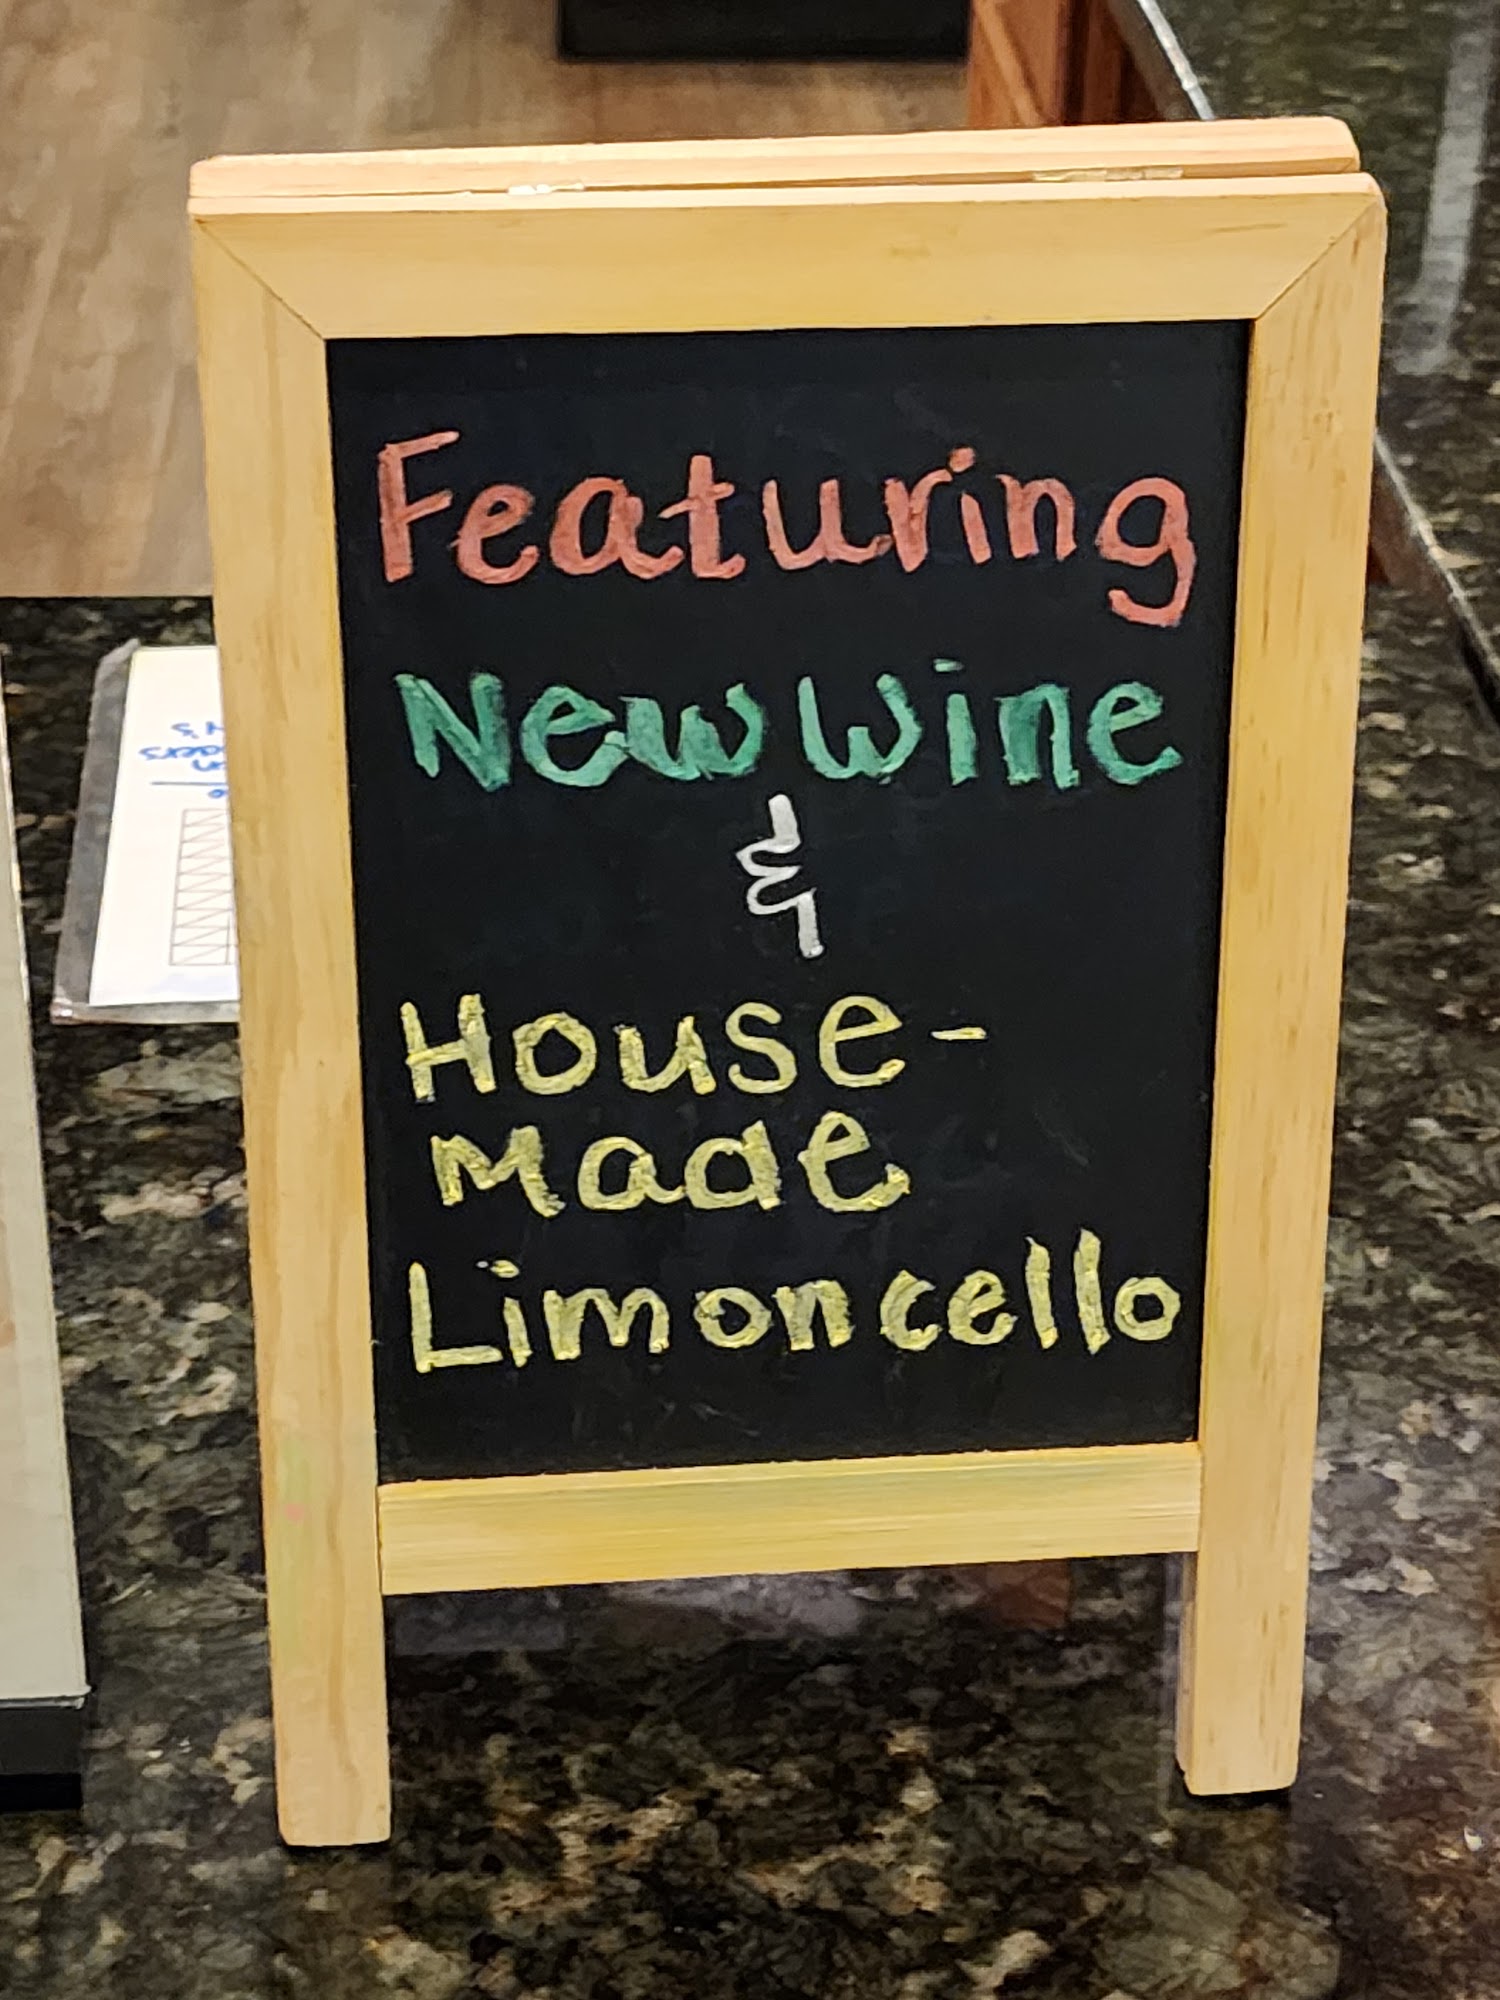 Featuring
New Wine
&
House-
Made
Limoncello